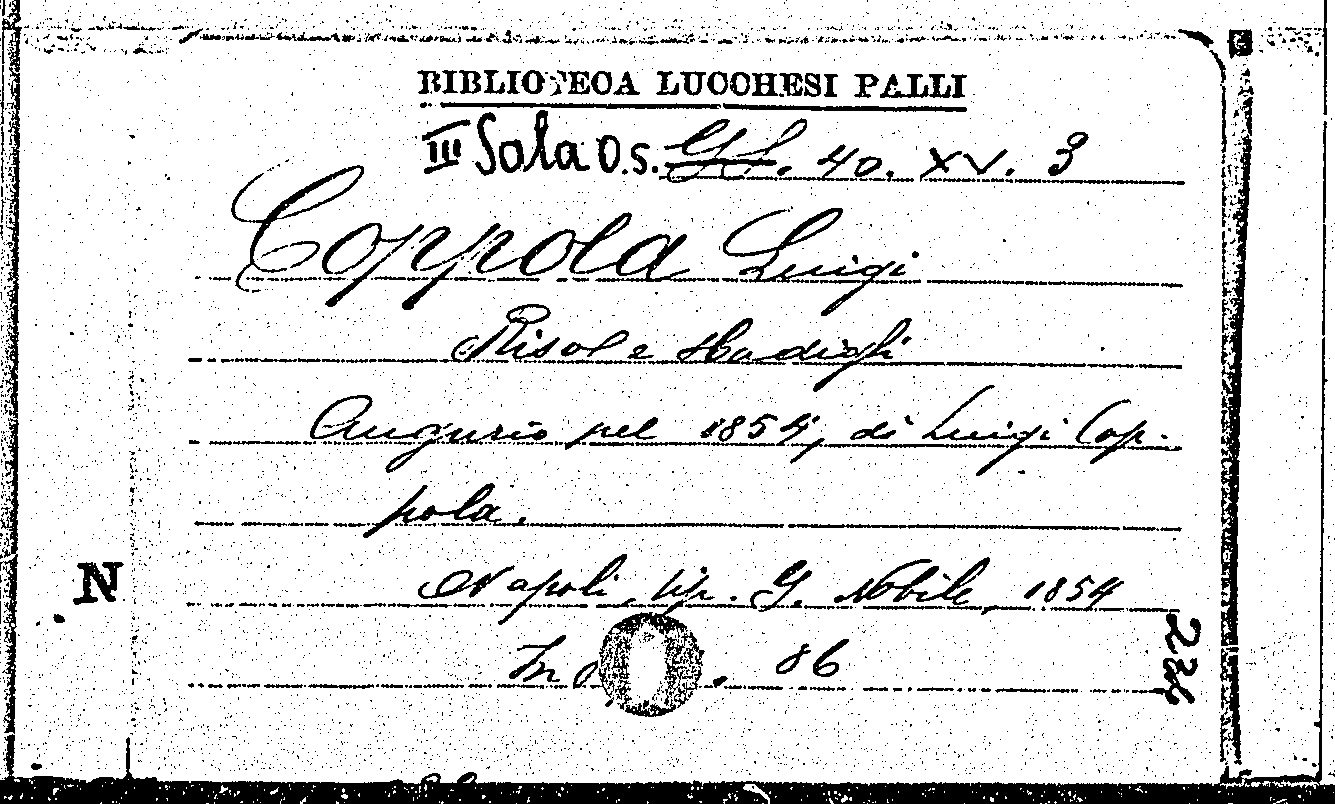 BIBLIOTECA LUCCHESI PALLI
III Sala O.S. 40. XV. 3
Coppola Luigi
Risol e
Augurio pel 1854, di Luigi Cop-
pola.
Napoli, tip. G. Nobile, 1854
In 86
N
224